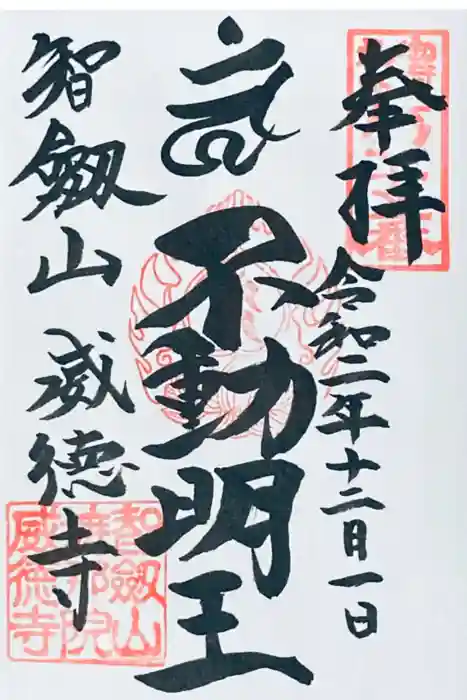 奉拝
令和二年十二月一日
不動明王
智劔山 威徳寺
智劔山
威徳寺